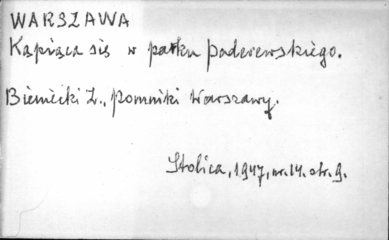 WARSZAWA
Kąpiąca się w parku Paderewskiego.
Biernacki Z., Pomniki Warszawy.
Stolica, 1947, nr. 14. str. 9.